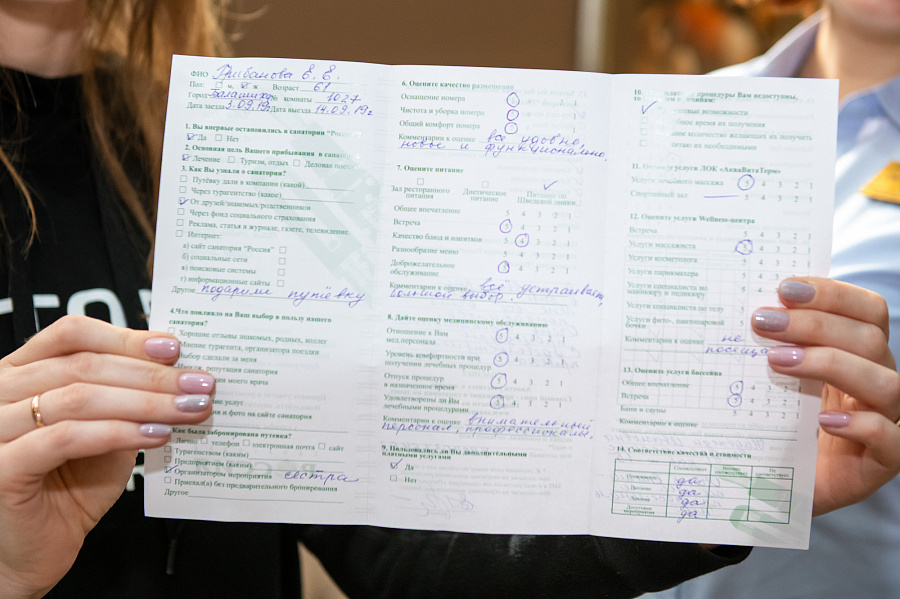 ФИО Грибанова Е. Е.
Пол: м, ж Возраст 61
Город Балашиха № комнаты 1027
Дата заезда 3.09.19г Дата выезда 14.09.19г
1. Вы впервые остановились в санатории "Россия"
Да Нет
2. Основная цель Вашего прибывания в санаторий
Лечение Туризм, отдых Деловая поездка
3. Как Вы узнали о санатории?
Путёвку дали в компании (какой)
Через турагентство (какое)
От друзей/знакомых/родственников
Через фонд социального страхования
Реклама, статья в журнале, газете, телевидение
Интернет:
а) сайт санатория "Россия"
б) социальные сети
в) поисковые системы
г) информационные сайты
Другое подарили путёвку
4. Что повлияло на Ваш выбор в пользу нашего
санатория?
Хорошие отзывы знакомых, родных, коллег
Мнение турагента, организатора поездки
Выбор сделали за меня
репутация санатория
моего врача
услуг
и фото на сайте санатория
Как была забронирована путевка?
Лично телефон электронная почта сайт
Турагенством (каким)
Предприятием (каким)
Организатором мероприятия сестра
Приехал(а) без предварительного бронирования
Другое
6. Оцените качество размещения
Оснащение номера
Чистота и уборка номера
Общий комфорт номера
Комментарии к оценке всё удобно,
новое и функционально.
7. Оцените питание
Зал ресторанного Диетическое Питание по
питания питание Шведской линии
Общее впечатление 5 4 3 2 1
Встреча 5 4 3 2 1
Качество блюд и напитков 5 4 3 2 1
Разнообразие меню 5 4 3 2 1
Доброжелательное
обслуживание 5 4 3 2 1
Комментарии к оценке всё устраивает,
большой выбор.
8. Дайте оценку медицинскому обслуживанию
Отношение к Вам
мед.персонала 5 4 3 2 1
Уровень комфортности при
получении лечебных процедур 5 4 3 2 1
Отпуск процедур
в назначенное время 5 4 3 2 1
Удовлетворены ли Вы
лечебными процедурами 5 4 3 2 1
Комментарии к оценке внимательный
персонал, профессионалы.
9. Пользовались ли Вы дополнительными
платными услугами
Да
Нет
10. процедуры Вам недоступны,
возможности
время их получения
количество желающих их получить
их необходимыми
11. услуги ЛОК «АкваВитаТерм»
Услуги массажиста 5 4 3 2 1
Спортивный зал 5 4 3 2 1
12. Оцените услуги Wellness-центра
Встреча 5 4 3 2 1
Услуги массажиста 5 4 3 2 1
Услуги косметолога 5 4 3 2 1
Услуги парикмахера 5 4 3 2 1
Услуги специалиста по
маникюру и педикюру 5
Услуги специалиста по телу
Услуги фито-,
бочки
Комментарии к оценке не
13. Оцените услуги бассейна
Общее впечатление 5 4 3
Встреча 5 4 3 2
Бани и сауны 5 4 3 2 1
Комментарии к оценке
14. Соответствие качества и стоимости
Проживание да
Питание да
Лечение да
Досуговые
мероприятия да